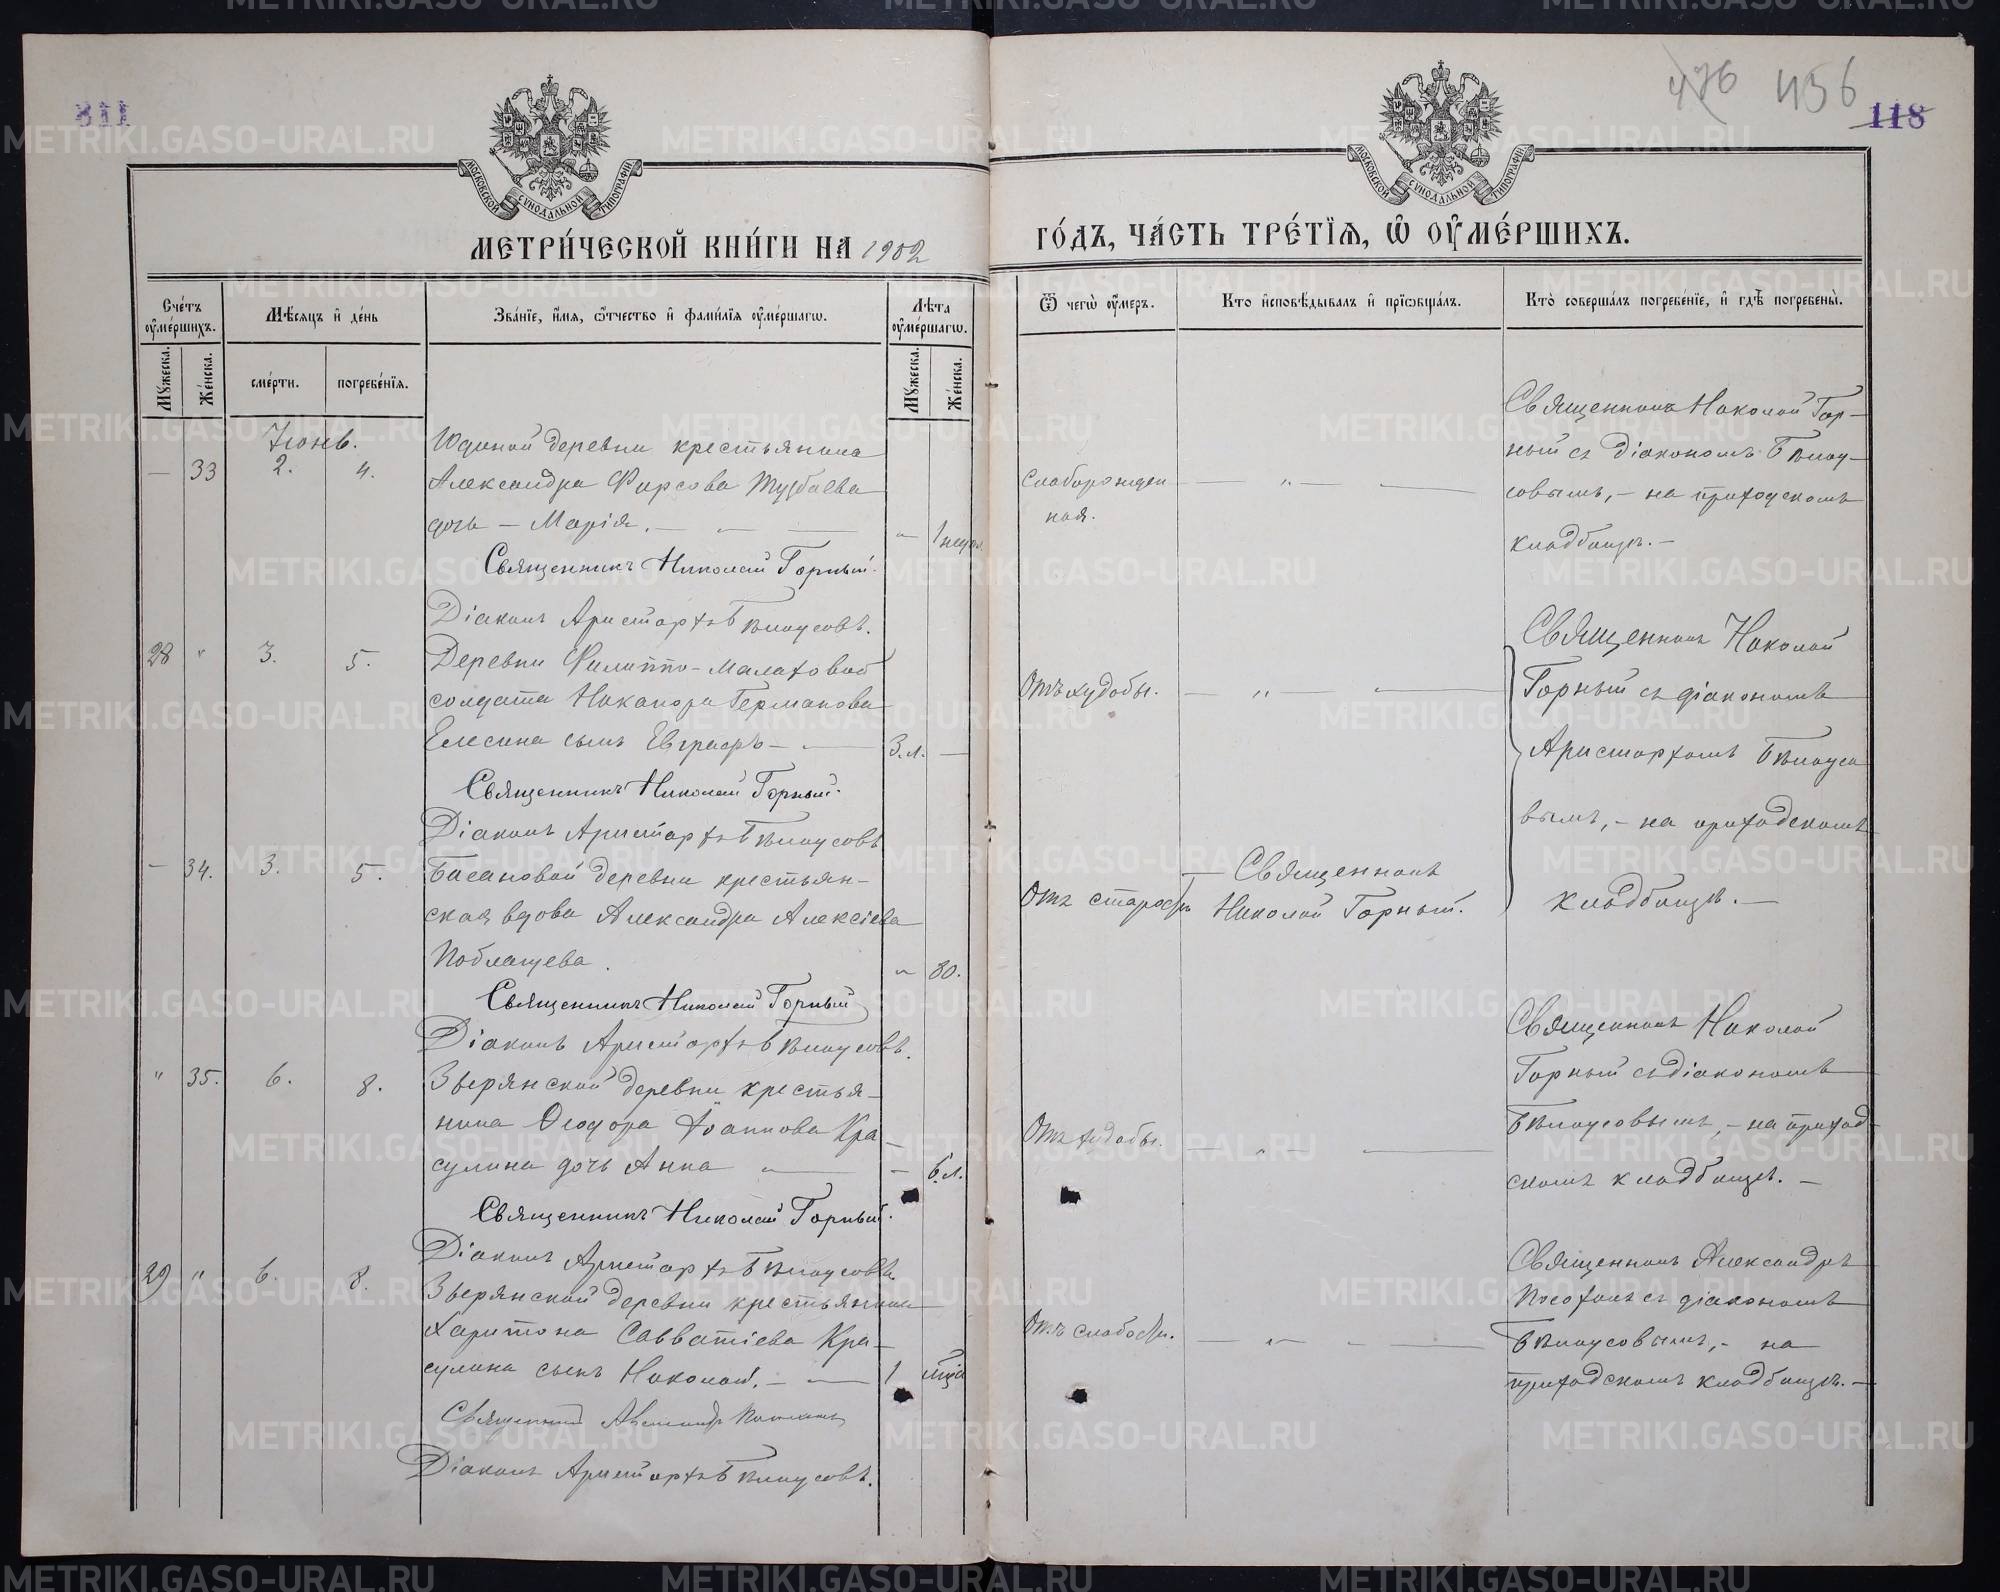 811
476 456
118
МОСКОВСКОЙ СѴНОДАЛЬНОЙ ТИПОГРАФІИ
МОСКОВСКОЙ СѴНОДАЛЬНОЙ ТИПОГРАФІИ
МЕТРИ́ЧЕСКОЙ КНИ́ГИ НА 1902
ГО́ДЪ, ЧА́СТЬ ТРЕ́ТЇѦ, Ѡ҆ ОУ҆МЕ́РШИХЪ.
Сче́тъ оу҆ме́ршихъ.
Мꙋжеска.
Же́нска.
Мѣ́сѧцъ и҆ де́нь
сме́рти.
погребе́нїѧ.
Зва́нїе, и҆́мѧ, ѻ҆́тчество и҆ фами́лїѧ оу҆ме́ршагѡ.
Лѣ́та оу҆ме́ршагѡ.
Мꙋжеска.
Же́нска.
Ѿ чегѡ̀ оу҆́меръ.
Кто̀ и҆сповѣ́дывалъ и҆ прїѡбща́лъ.
Кто̀ соверша́лъ погребе́нїе, и҆ гдѣ̀ погребены̀.
Іюнь.
— 33 2. 4.
Юдиной деревни крестьянина
Александра Фирсова
дочь — Марія. — „ —
„ 1 недѣл.
Священникъ Николай Горный.
Діаконъ Аристархъ Бѣлоусовъ.
Слаборожден
ная.
— „ — —
Священникъ Николай Гор-
ный съ діакономъ Бѣлоу-
совымъ, — на приходскомъ
кладбищѣ. —
28 „ 3. 5.
Деревни Филиппо-Малаховой
солдата Никанора Германова
Елесина сынъ Евграфъ — —
3. л. —
Священникъ Николай Горный.
Діаконъ Аристархъ Бѣлоусовъ
Отъ худобы.
— „ — —
Священникъ Николай
Горный съ діакономъ
Аристархомъ Бѣлоусо
вымъ, — на приходскомъ
кладбищѣ. —
— 34. 3. 5.
Басановой деревни крестьян-
ская вдова Александра Алексіева
Поблагуева.
„ 80.
Священникъ Николай Горный
Діаконъ Аристархъ Бѣлоусовъ.
Отъ старости
— Священникъ
Николай Горный.
„ 35. 6. 8.
Зверянской деревни крестья-
нина Ѳеодора Іоаннова Кра-
сулина дочь Анна „ —
— 6. л.
Священникъ Николай Горный.
Діаконъ Аристархъ Бѣлоусовъ.
Отъ худобы.
— „ — —
Священникъ Николай
Горный съ діакономъ
Бѣлоусовымъ, — на приход
скомъ кладбищѣ. —
29 „ 6. 8.
Зверянской деревни крестьянина
Харитона Савватіева Кра-
сулина сынъ Николай. — —
1 мѣсяц
Священникъ Александръ
Діаконъ Аристархъ Бѣлоусовъ.
Отъ слабости.
— „ — —
Священникъ Александръ
съ діакономъ
Бѣлоусовымъ, — на
приходскомъ кладбищѣ. —
METRIKI.GASO-URAL.RU